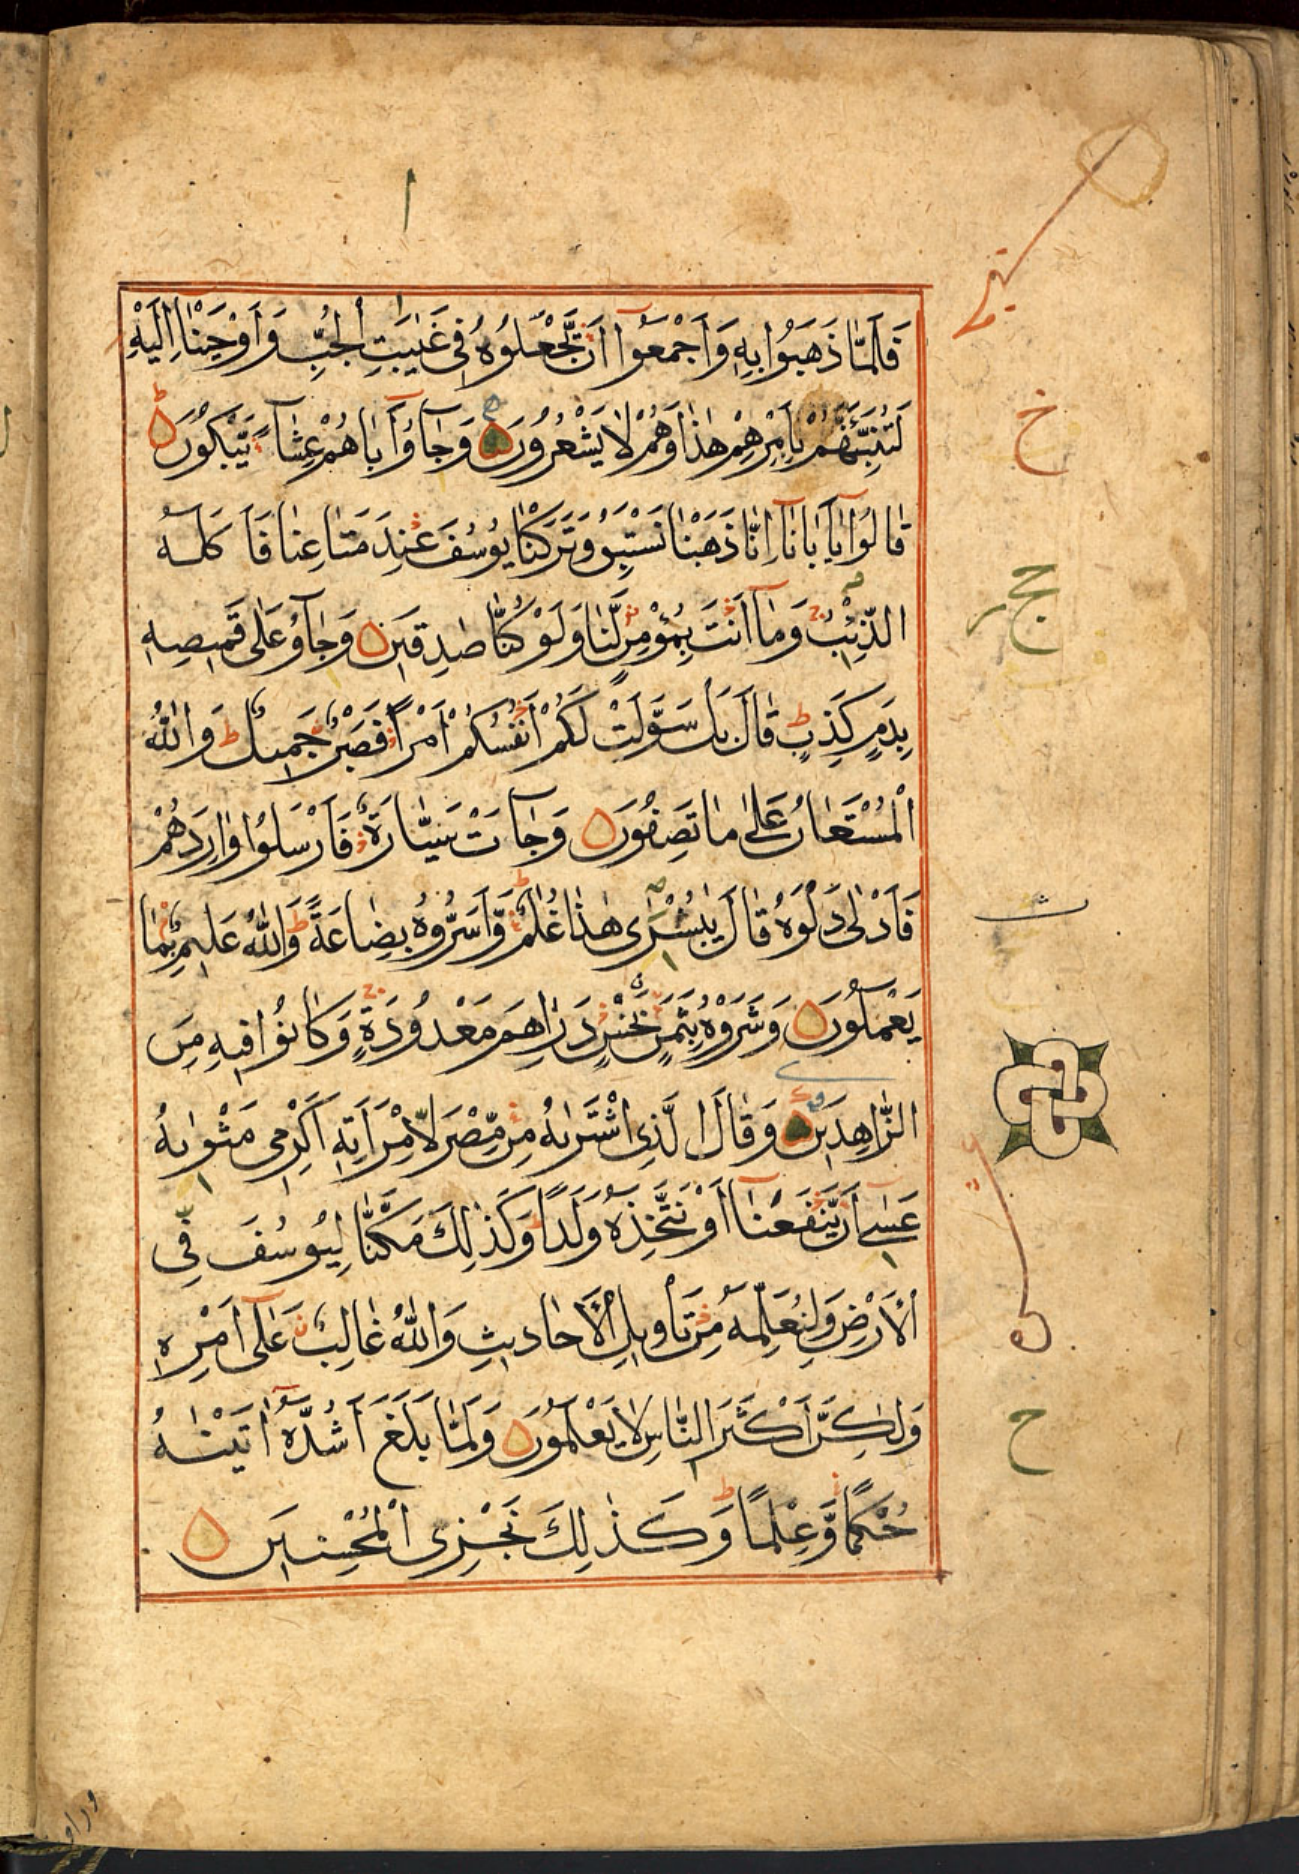 فَلَمَّا ذَهَبُوا بِهٖ وَاَجْمَعُوٓا اَنْ يَّجْعَلُوْهُ فِى غَيٰبَتِ الْجُبِّ وَاَوْحَيْنَآ اِلَيْهِ
لَتُنَبِّئَنَّهُمْ بِاَمْرِهِمْ هٰذَا وَهُمْ لَا يَشْعُرُوْنَ وَجَآؤُٓ اَبَاهُمْ عِشَآءً يَّبْكُوْنَ ط
قَالُوْا يٰٓاَبَانَآ اِنَّا ذَهَبْنَا نَسْتَبِقُ وَتَرَكْنَا يُوْسُفَ عِنْدَ مَتَاعِنَا فَاَكَلَهُ
الذِّئْبُ ج وَمَآ اَنْتَ بِمُؤْمِنٍ لَّنَا وَلَوْ كُنَّا صٰدِقِيْنَ وَجَآؤُ عَلٰى قَمِيْصِهٖ
بِدَمٍ كَذِبٍ ط قَالَ بَلْ سَوَّلَتْ لَكُمْ اَنْفُسُكُمْ اَمْرًا فَصَبْرٌ جَمِيْلٌ ط وَاللّٰهُ
الْمُسْتَعَانُ عَلٰى مَا تَصِفُوْنَ وَجَآءَتْ سَيَّارَةٌ فَاَرْسَلُوْا وَارِدَهُمْ
فَاَدْلٰى دَلْوَهُ ط قَالَ يٰبُشْرٰى هٰذَا غُلٰمٌ ط وَّاَسَرُّوْهُ بِضَاعَةً ط وَاللّٰهُ عَلِيْمٌ بِمَا
يَعْمَلُوْنَ وَشَرَوْهُ بِثَمَنٍ بَخْسٍ دَرَاهِمَ مَعْدُوْدَةٍ ج وَكَانُوْا فِيْهِ مِنَ
الزَّاهِدِيْنَ وَقَالَ الَّذِى اشْتَرٰىهُ مِنْ مِّصْرَ لِامْرَاَتِهٖٓ اَكْرِمِى مَثْوٰىهُ
عَسٰٓى اَنْ يَّنْفَعَنَآ اَوْ نَتَّخِذَهُ وَلَدًا ط وَكَذٰلِكَ مَكَّنَّا لِيُوْسُفَ فِى
الْاَرْضِ وَلِنُعَلِّمَهُ مِنْ تَاْوِيْلِ الْاَحَادِيْثِ وَاللّٰهُ غَالِبٌ عَلٰٓى اَمْرِهٖ
وَلٰكِنَّ اَكْثَرَ النَّاسِ لَا يَعْلَمُوْنَ وَلَمَّا بَلَغَ اَشُدَّهُٓ اٰتَيْنٰهُ
حُكْمًا وَّعِلْمًا ط وَكَذٰلِكَ نَجْزِى الْمُحْسِنِيْنَ
خ
ح